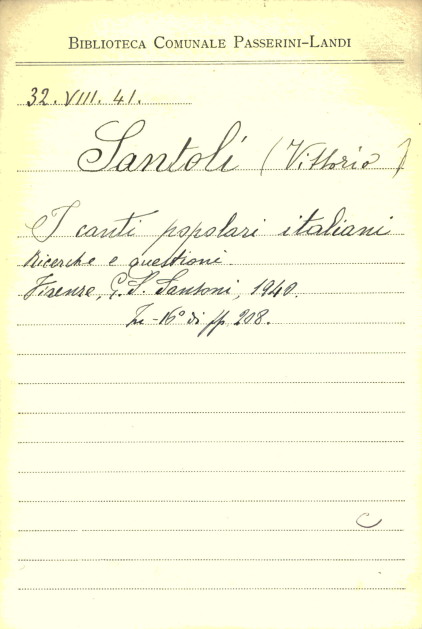 BIBLIOTECA COMUNALE PASSERINI-LANDI
32. VIII. 41.
Santoli (Vittorio)
I canti popolari italiani
Ricerche e questioni.
Firenze, G. S. Sansoni, 1940.
In-16° di pp. 208.
C